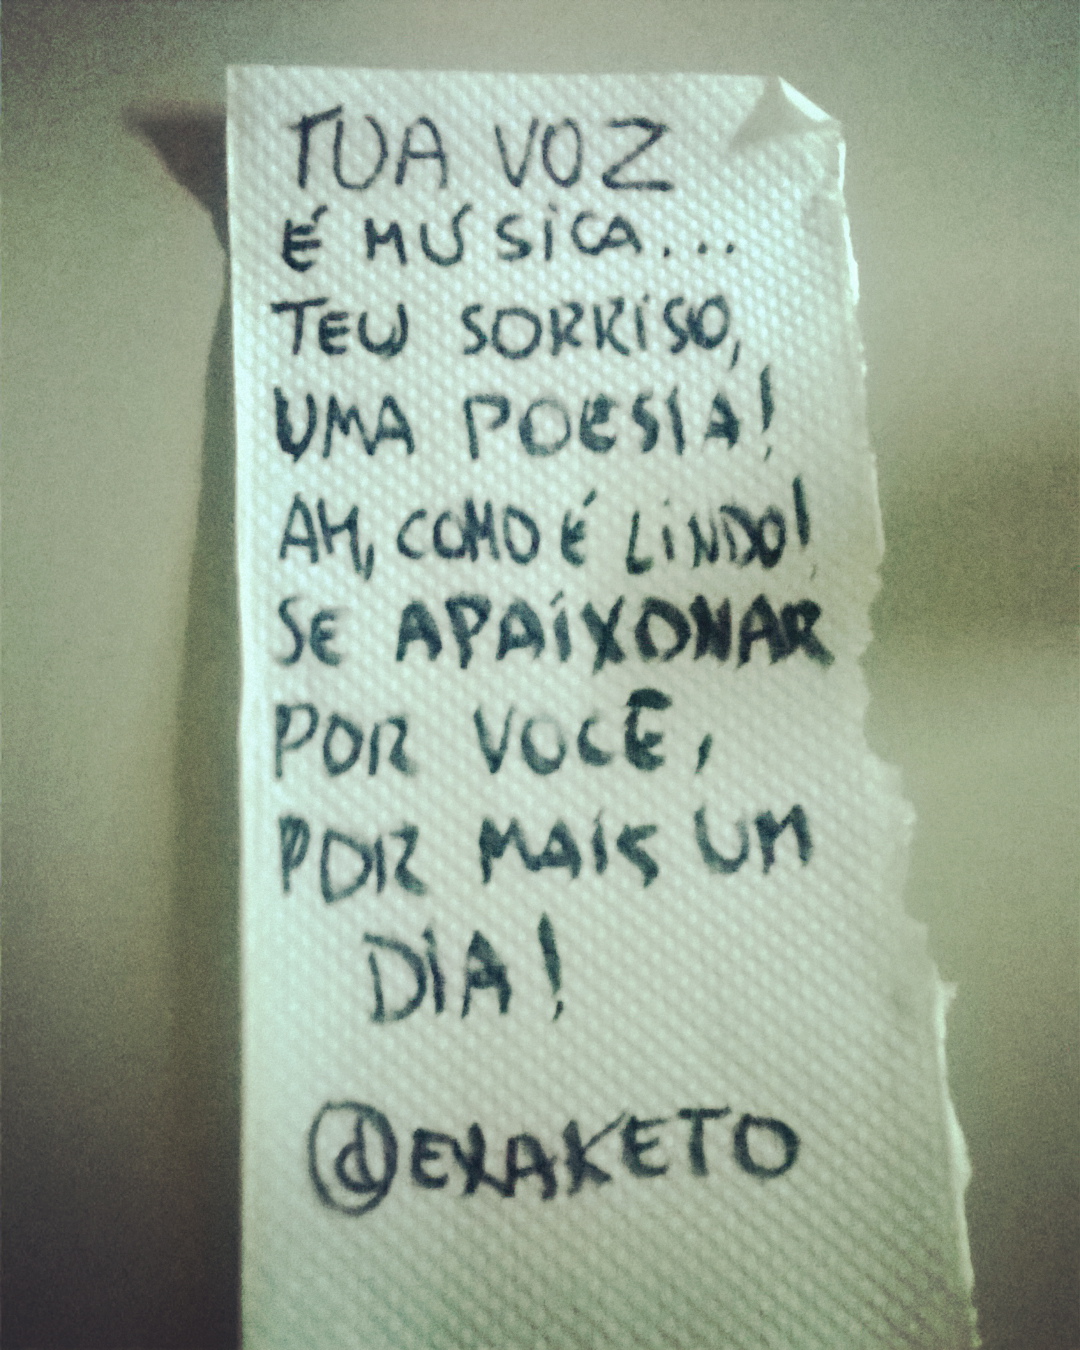 TUA VOZ
É MÚSICA...
TEU SORRISO,
UMA POESIA!
AH, COMO É LINDO!
SE APAIXONAR
POR VOCÊ,
POR MAIS UM
DIA!
@EXAKETO